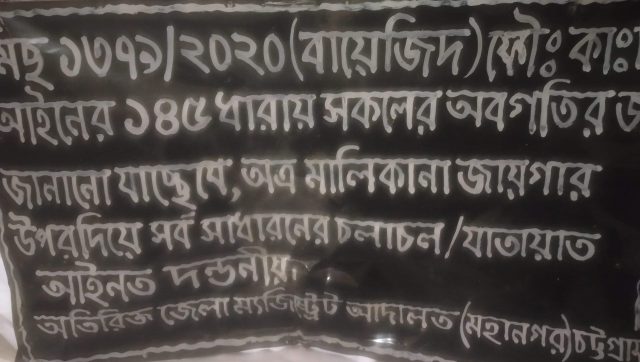 মিছ ১৩৭৯/২০২০(বায়েজিদ)ফৌঃ কাঃ
আইনের ১৪৫ ধারায় সকলের অবগতির
জানানো যাচ্ছেযে, অত্র মালিকানা জায়গার
উপরদিয়ে সর্ব সাধারনের চলাচল/যাতায়াত
আইনত দন্ডনীয়।
অতিরিক্ত জেলা ম্যজিষ্ট্রেট আদালত (মহানগর)চট্টগ্রাম